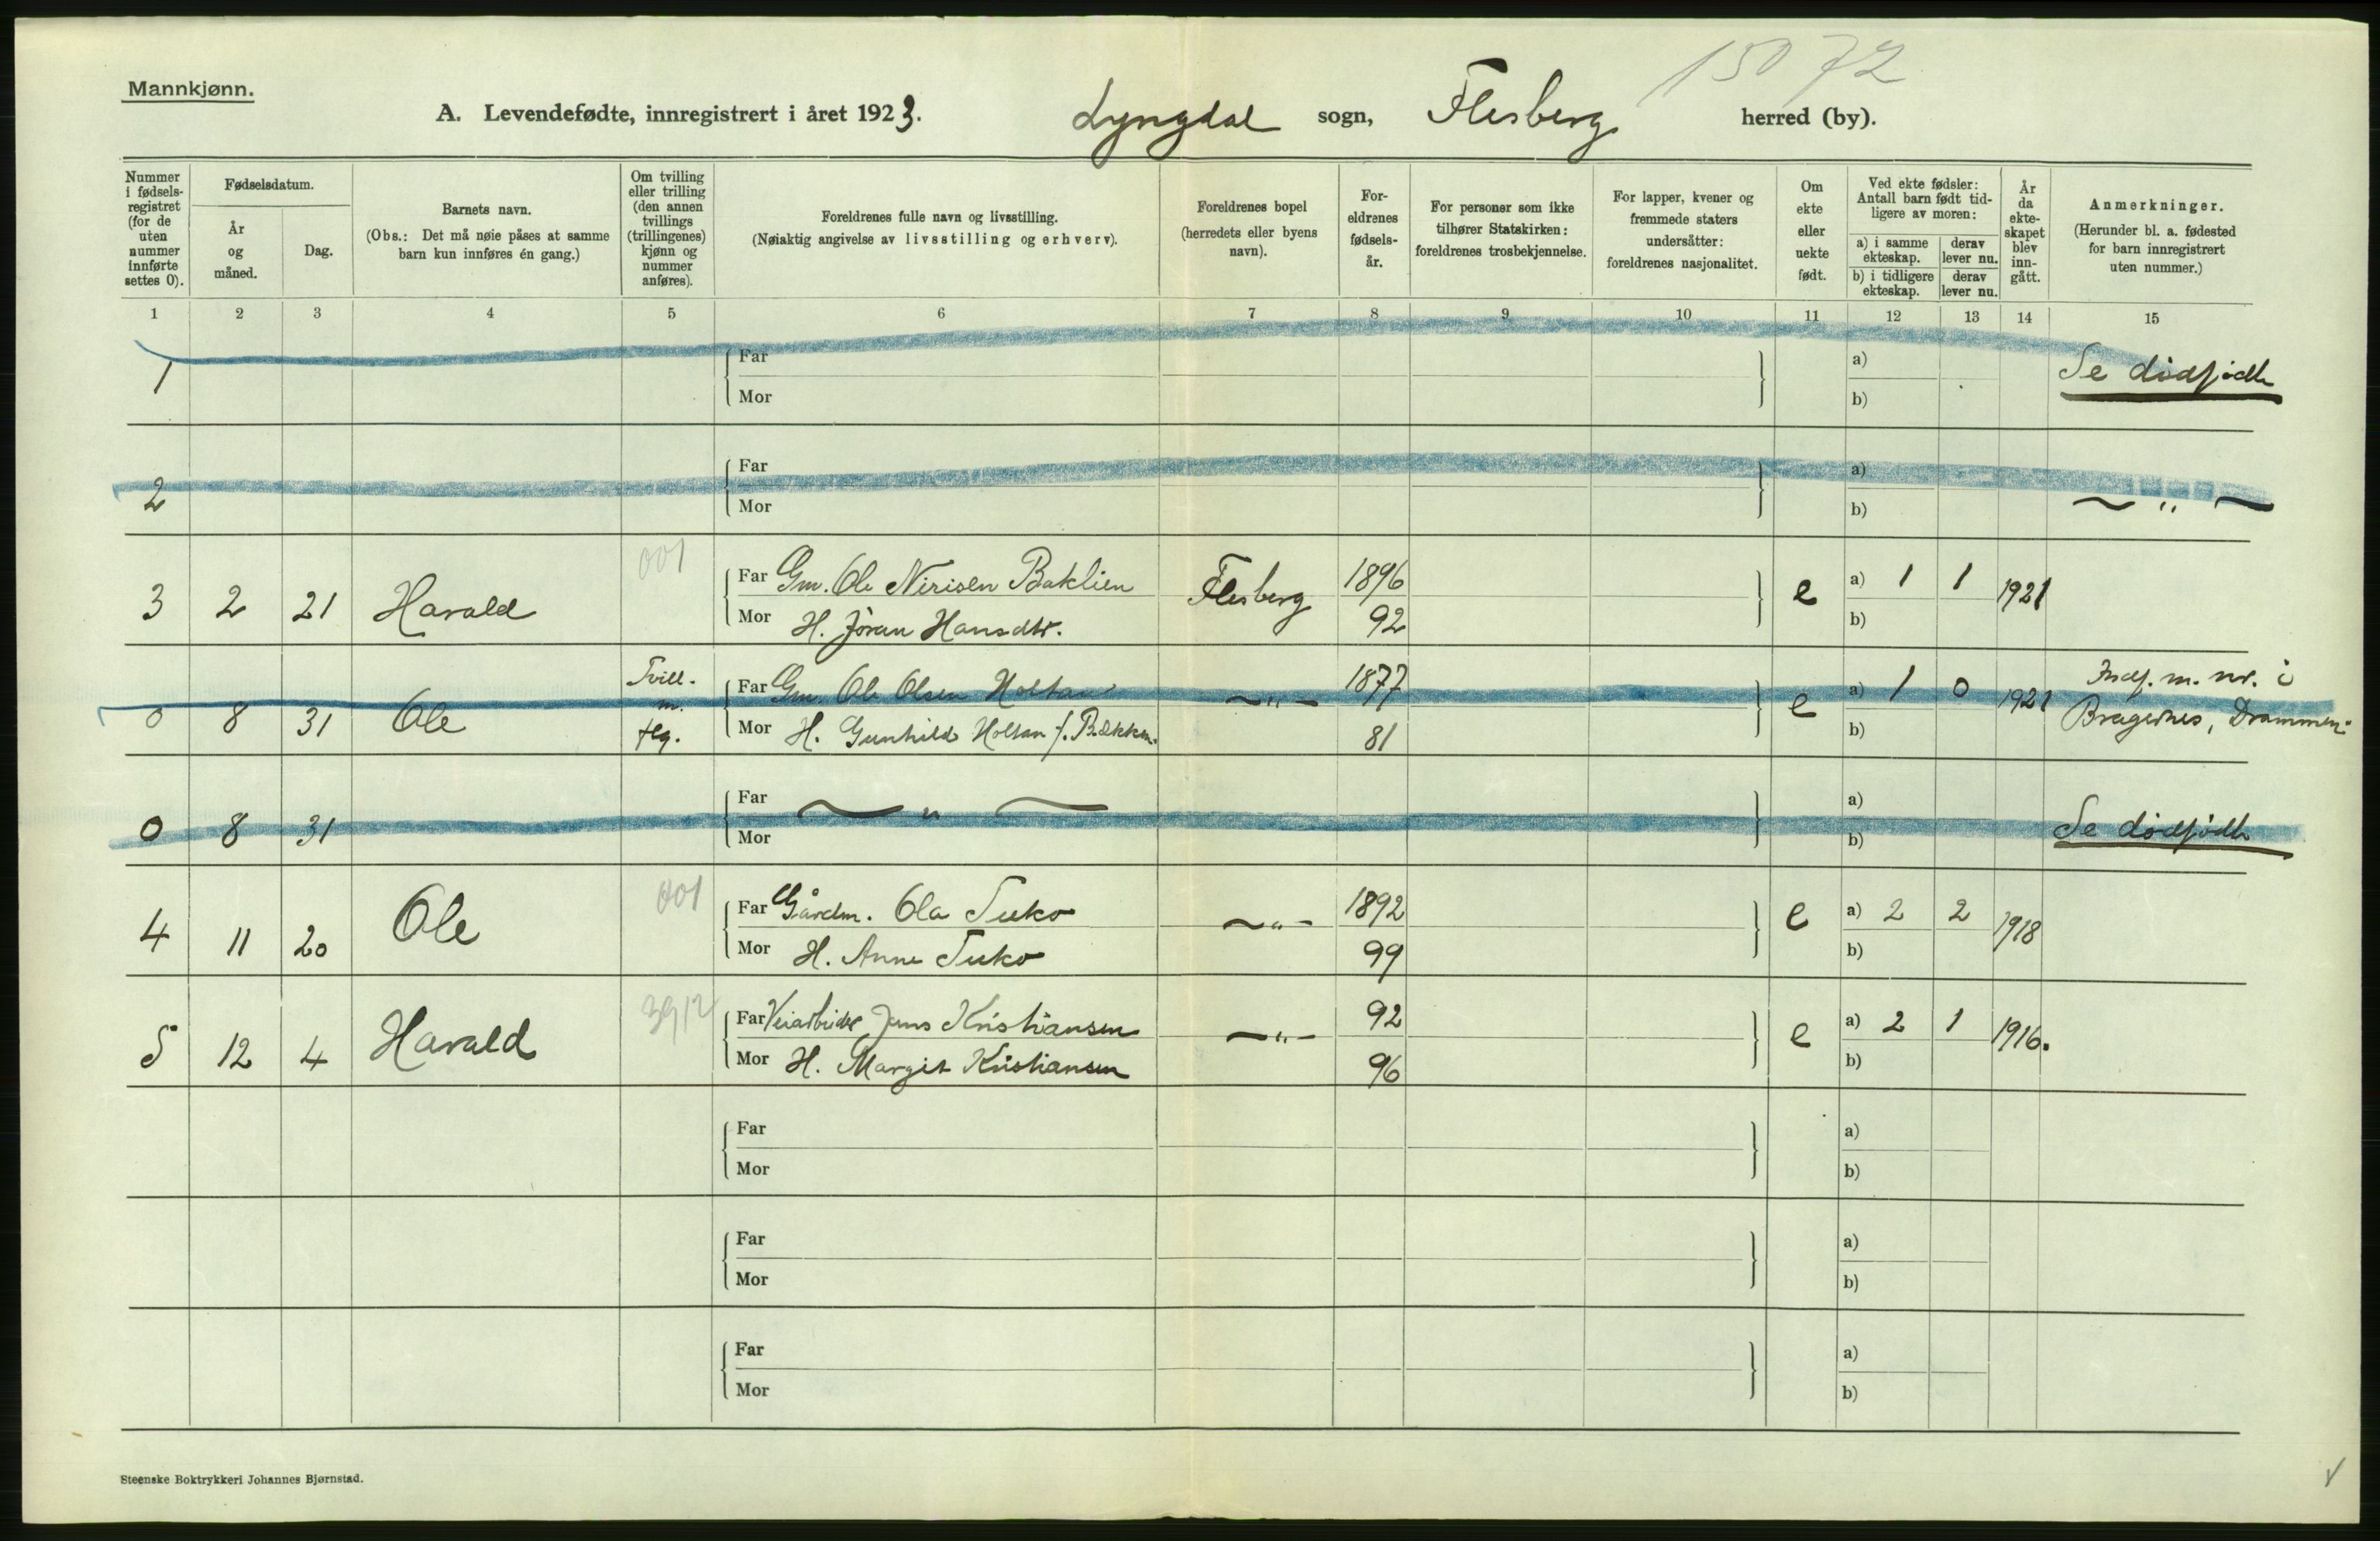 Mannkjønn.
15072
A. Levendefødte, innregistrert i året 1923. Lyngdal sogn, Flesberg herred (by).
Nummer i fødsels-registret (for de uten nummer innførte settes 0).
Fødselsdatum.
År og måned.
Dag.
Barnets navn.
(Obs.: Det må nøie påses at samme barn kun innføres én gang.)
Om tvilling eller trilling (den annen tvillings (trillingenes) kjønn og nummer anføres).
Foreldrenes fulle navn og livsstilling.
(Nøiaktig angivelse av livsstilling og erhverv).
Foreldrenes bopel (herredets eller byens navn).
For-eldrenes fødsels-år.
For personer som ikke tilhører Statskirken: foreldrenes trosbekjennelse.
For lapper, kvener og fremmede staters undersåtter: foreldrenes nasjonalitet.
Om ekte eller uekte født.
Ved ekte fødsler: Antall barn født tid-ligere av moren:
a) i samme ekteskap. derav lever nu.
b) i tidligere ekteskap. derav lever nu.
År da ekte-skapet blev inn-gått.
Anmerkninger.
(Herunder bl. a. fødested for barn innregistrert uten nummer.)
1 2 3 4 5 6 7 8 9 10 11 12 13 14 15
1 Far a) Se dødfødte
Mor b)
2 Far a) — " —
Mor b)
3 2 21 Harald 001 Far Gm. Ole Nirisen Baklien Flesberg 1896 e a) 1 1 1921
Mor H. Jøran Hansdtr. 92 b)
0 8 31 Ole Tvill. m. Far Gm. Ole Olsen Holtan — " — 1877 e a) 1 0 1921 m. nr. i
Mor H. Gunhild Holtan f. Bækken. 81 b) Bragernes, Drammen.
0 8 31 Far — " — a) Se dødfødte
Mor b)
4 11 20 Ole 001 Far Gårdm. Ola Tuko — " — 1892 e a) 2 2 1918
Mor H. Anne Tuko 99 b)
5 12 4 Harald 3912 Far Veiarbeider Jens Kristiansen — " — 92 e a) 2 1 1916.
Mor H. Margit Kristiansen 96 b)
Far a)
Mor b)
Far a)
Mor b)
Far a)
Mor b)
Steenske Boktrykkeri Johannes Bjørnstad.